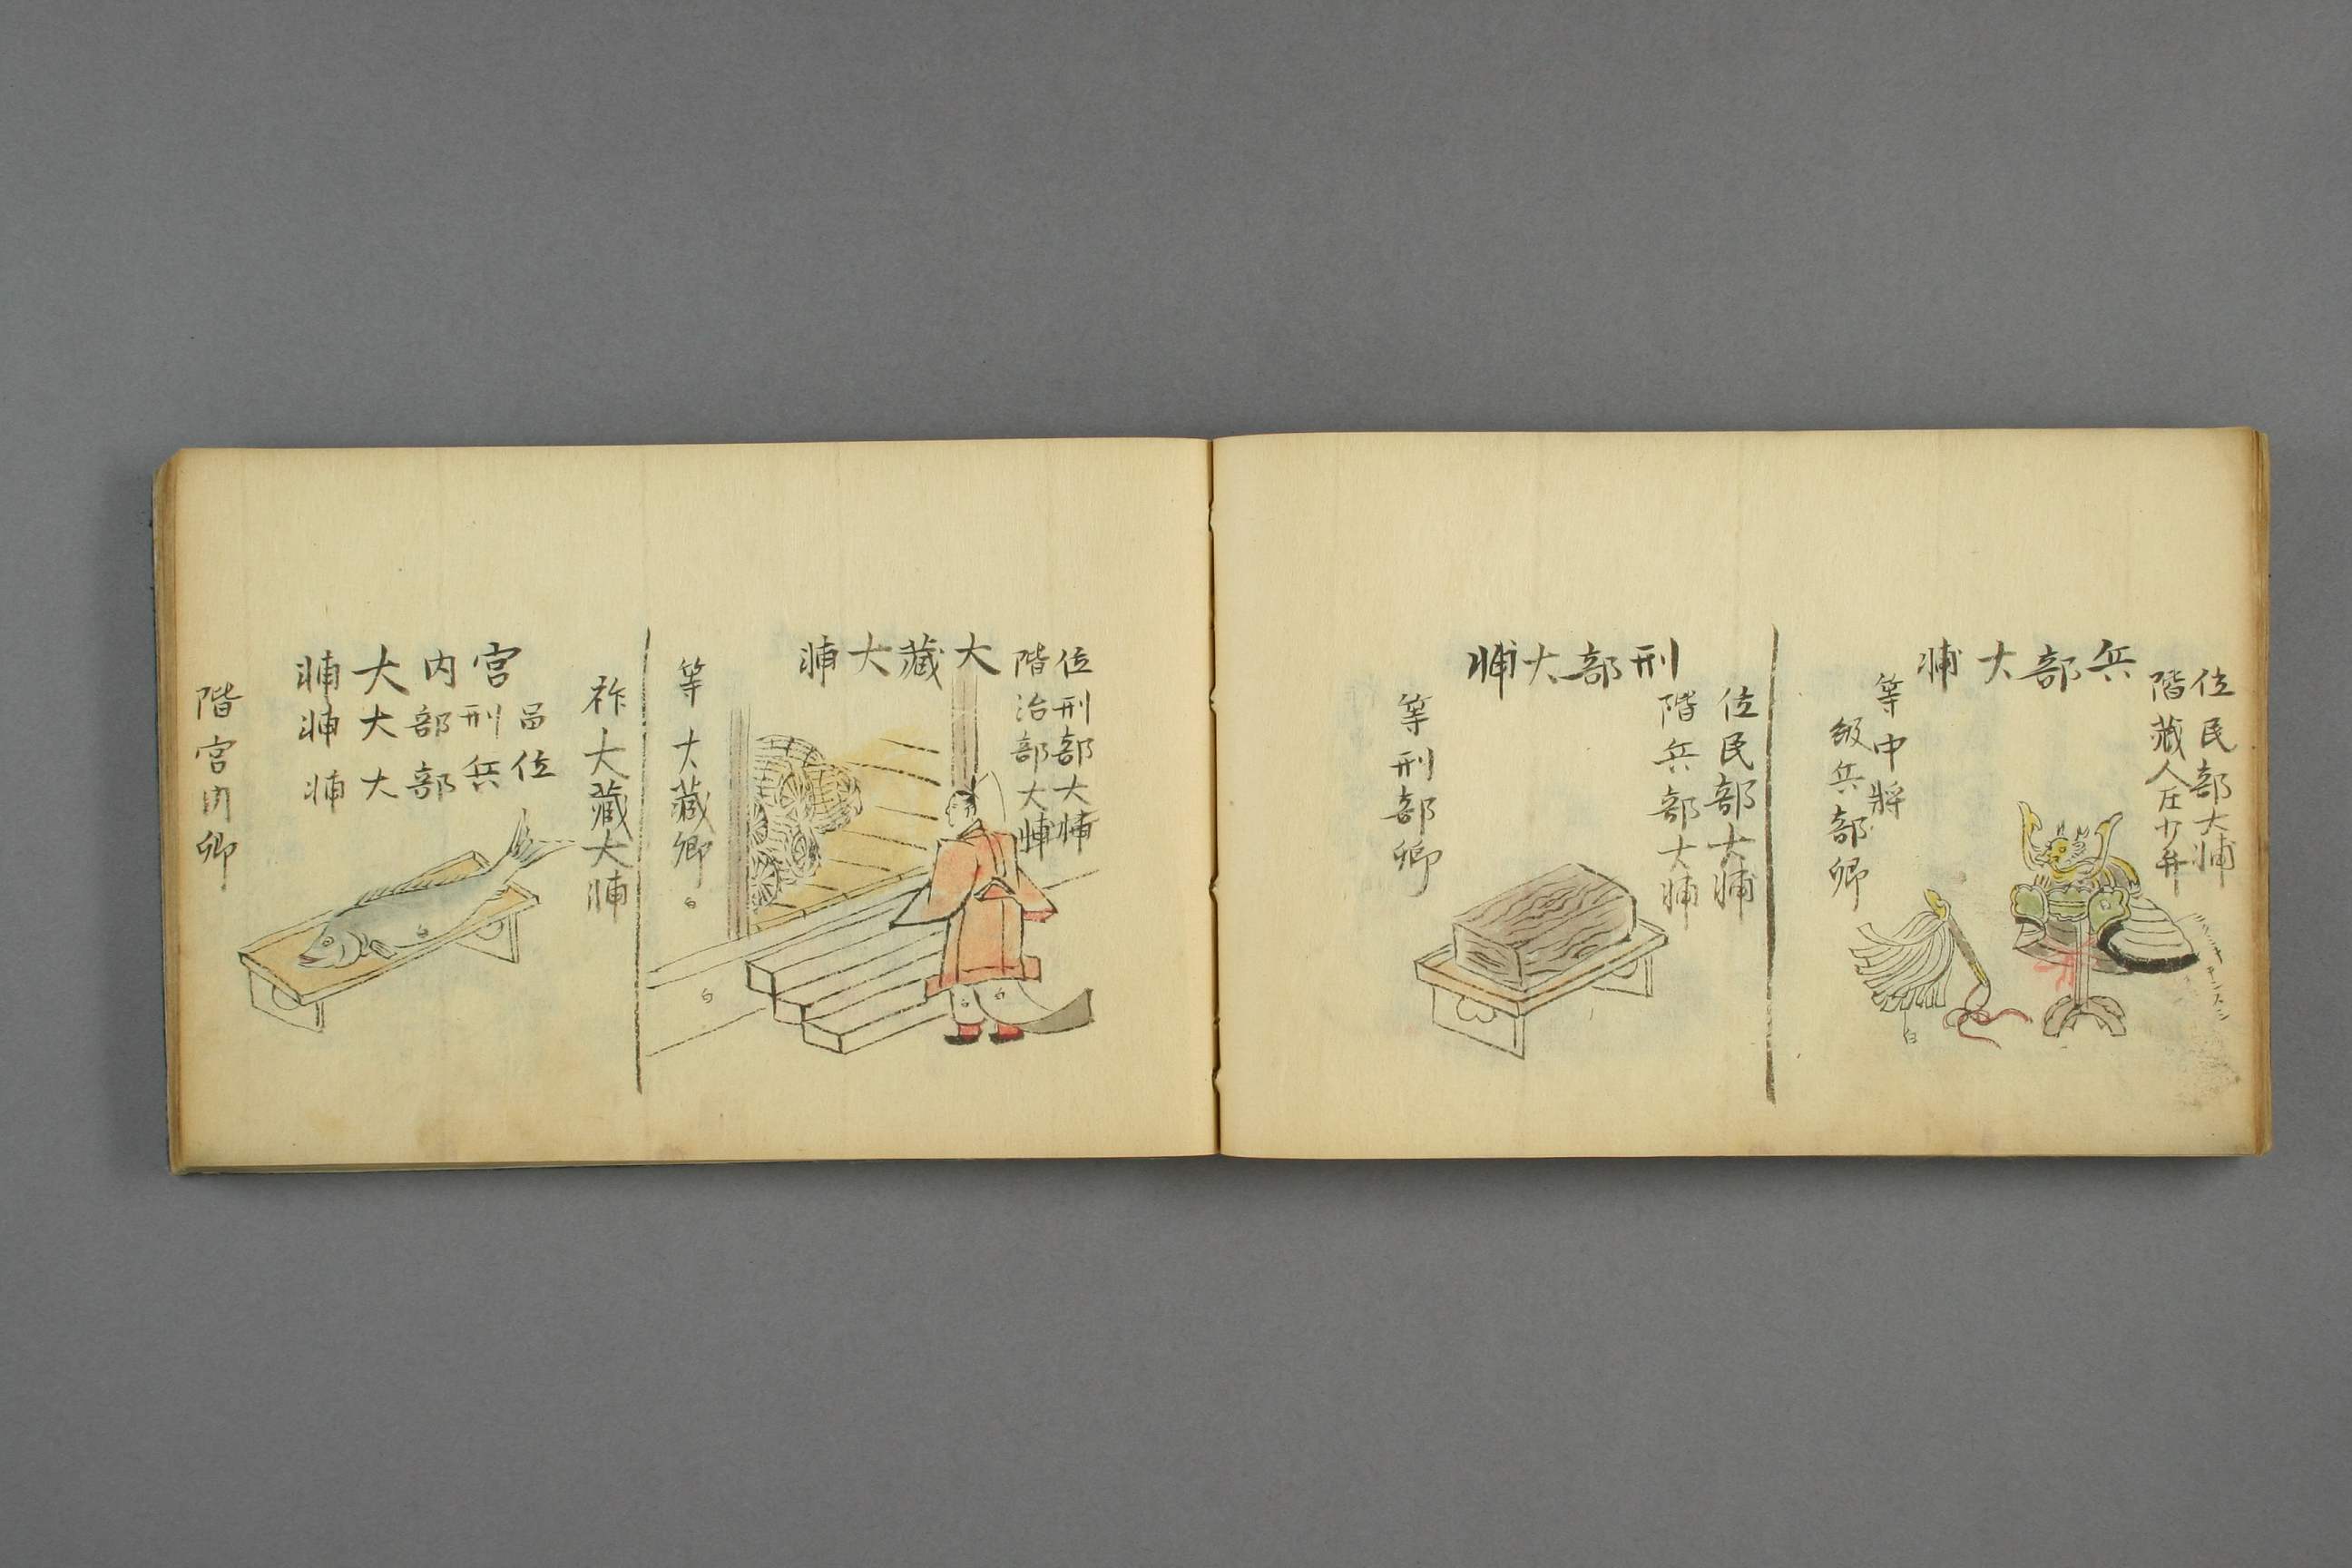 位民部大輔
階藏人左少弁
兵部大輔
等中將
級兵部卿
白
刑部大輔
位民部大輔
階兵部大輔
等刑部卿
位刑部大輔
階治部大輔
大藏大輔
白
白
等大藏卿
白
白
祚大藏大輔
宮内大輔
品刑部大輔
位兵部大輔
白
階宮内卿